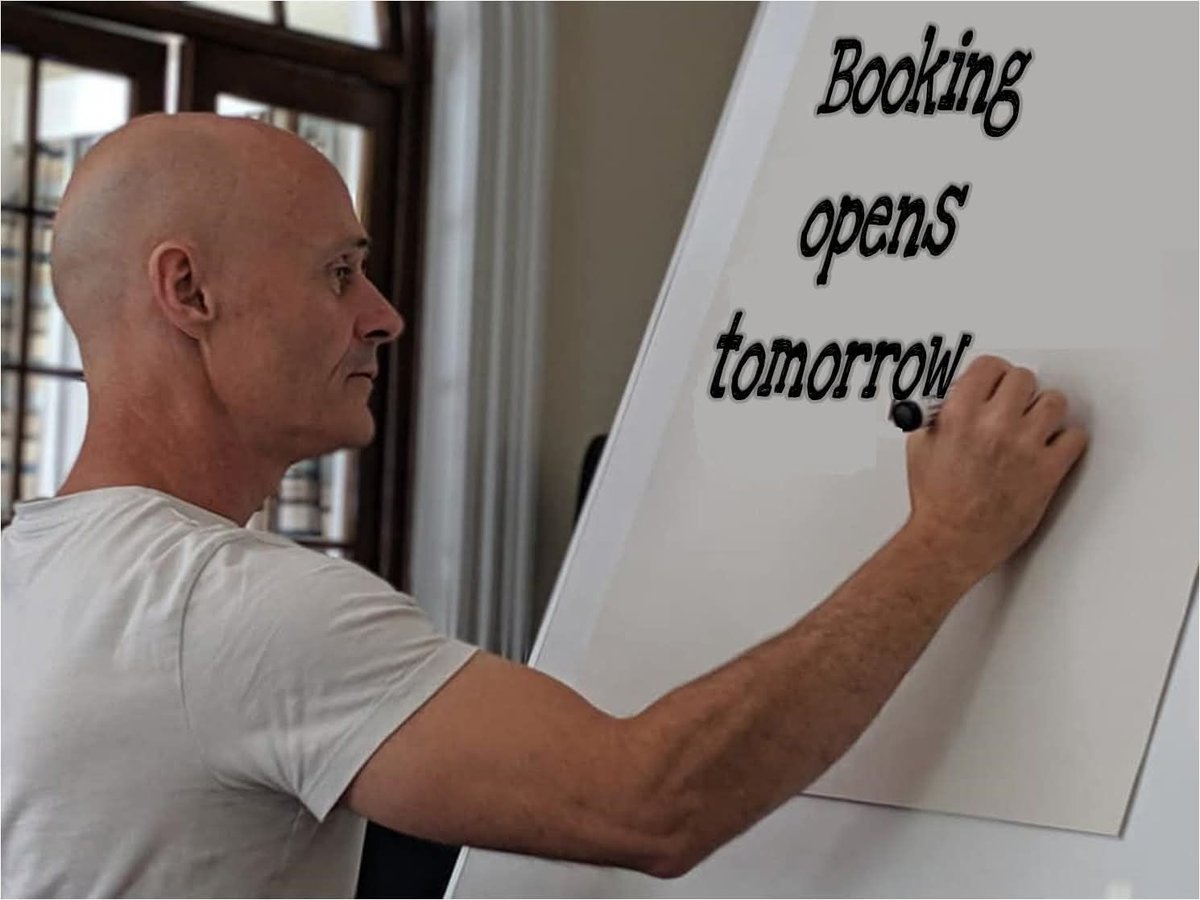 Booking
opens
tomorrow